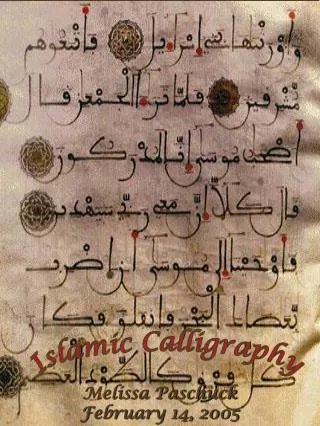 وَأَوْرَثْنَٰهَا بَنِي إِسْرَٰءِيلَ فَأَتْبَعُوهُم
مُّشْرِقِينَ فَلَمَّا تَرَٰءَا الْجَمْعَٰنِ قَالَ
أَصْحَٰبُ مُوسَىٰ إِنَّا لَمُدْرَكُونَ
قَالَ كَلَّا إِنَّ مَعِيَ رَبِّي سَيَهْدِينِ
فَأَوْحَيْنَا إِلَىٰ مُوسَىٰ أَنِ اضْرِب
بِّعَصَاكَ الْبَحْرَ فَانفَلَقَ فَكَانَ
كُلُّ فِرْقٍ كَالطَّوْدِ الْعَظِيمِ
Islamic Calligraphy
Melissa Paschuck
February 14, 2005